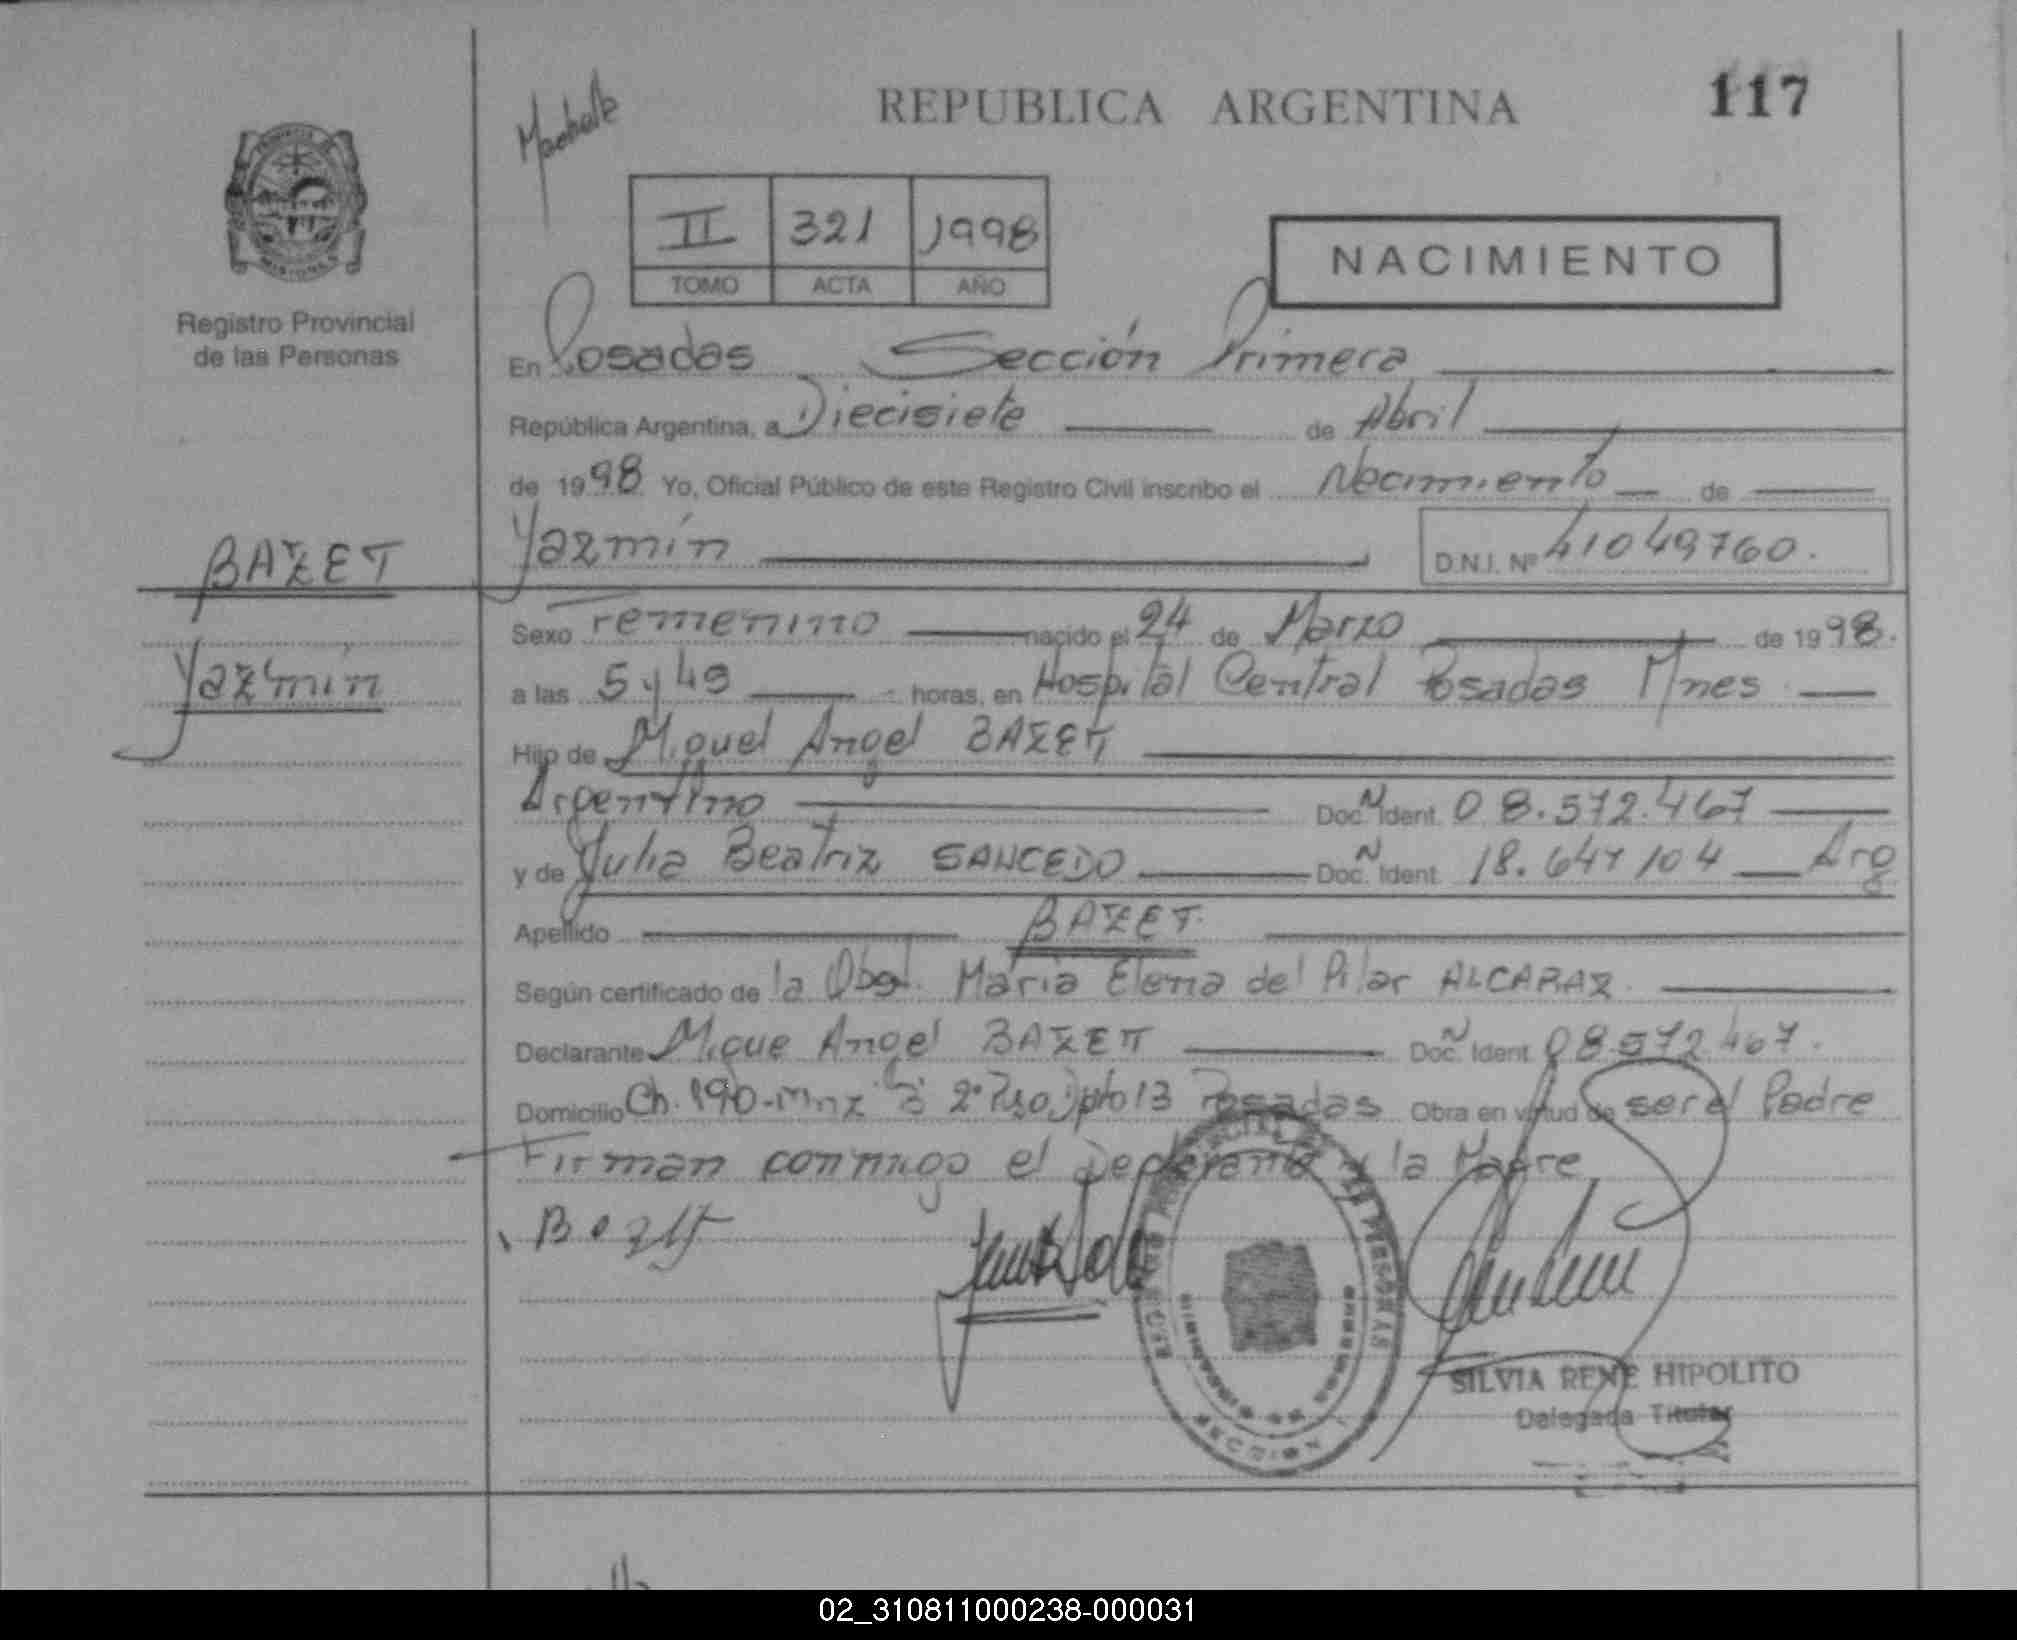 REPUBLICA ARGENTINA
117
II 321 1998
TOMO ACTA AÑO
NACIMIENTO
MISIONES
Registro Provincial
de las Personas
En Posadas Sección Primera
República Argentina, a Diecisiete de Abril
de 1998 Yo, Oficial Público de este Registro Civil inscribo el Nacimiento de
BAZET
Yazmín
D.N.I. Nº 41049760.
Sexo Femenino nacido el 24 de Marzo de 1998.
Yazmín
a las 5 y 49 horas, en Hospital Central Posadas Mnes
Hijo de Miguel Angel BAZET
Argentino Doc. Ident. 08.572.467
y de Julia Beatriz SANCEDO Doc. Ident. 18.647104 Arg
Apellido BAZET
Según certificado de la Obst. Maria Elena del Pilar ALCARAZ.
Declarante Migue Angel BAZET Doc. Ident. 08572467.
Domicilio Ch. 190-mnz 2º Piso Dpto 13 Posadas Obra en virtud de ser el Padre
Firman conmigo el Declarante y la Madre
SECCION
SILVIA RENE HIPOLITO
Delegada Titular
02_310811000238-000031